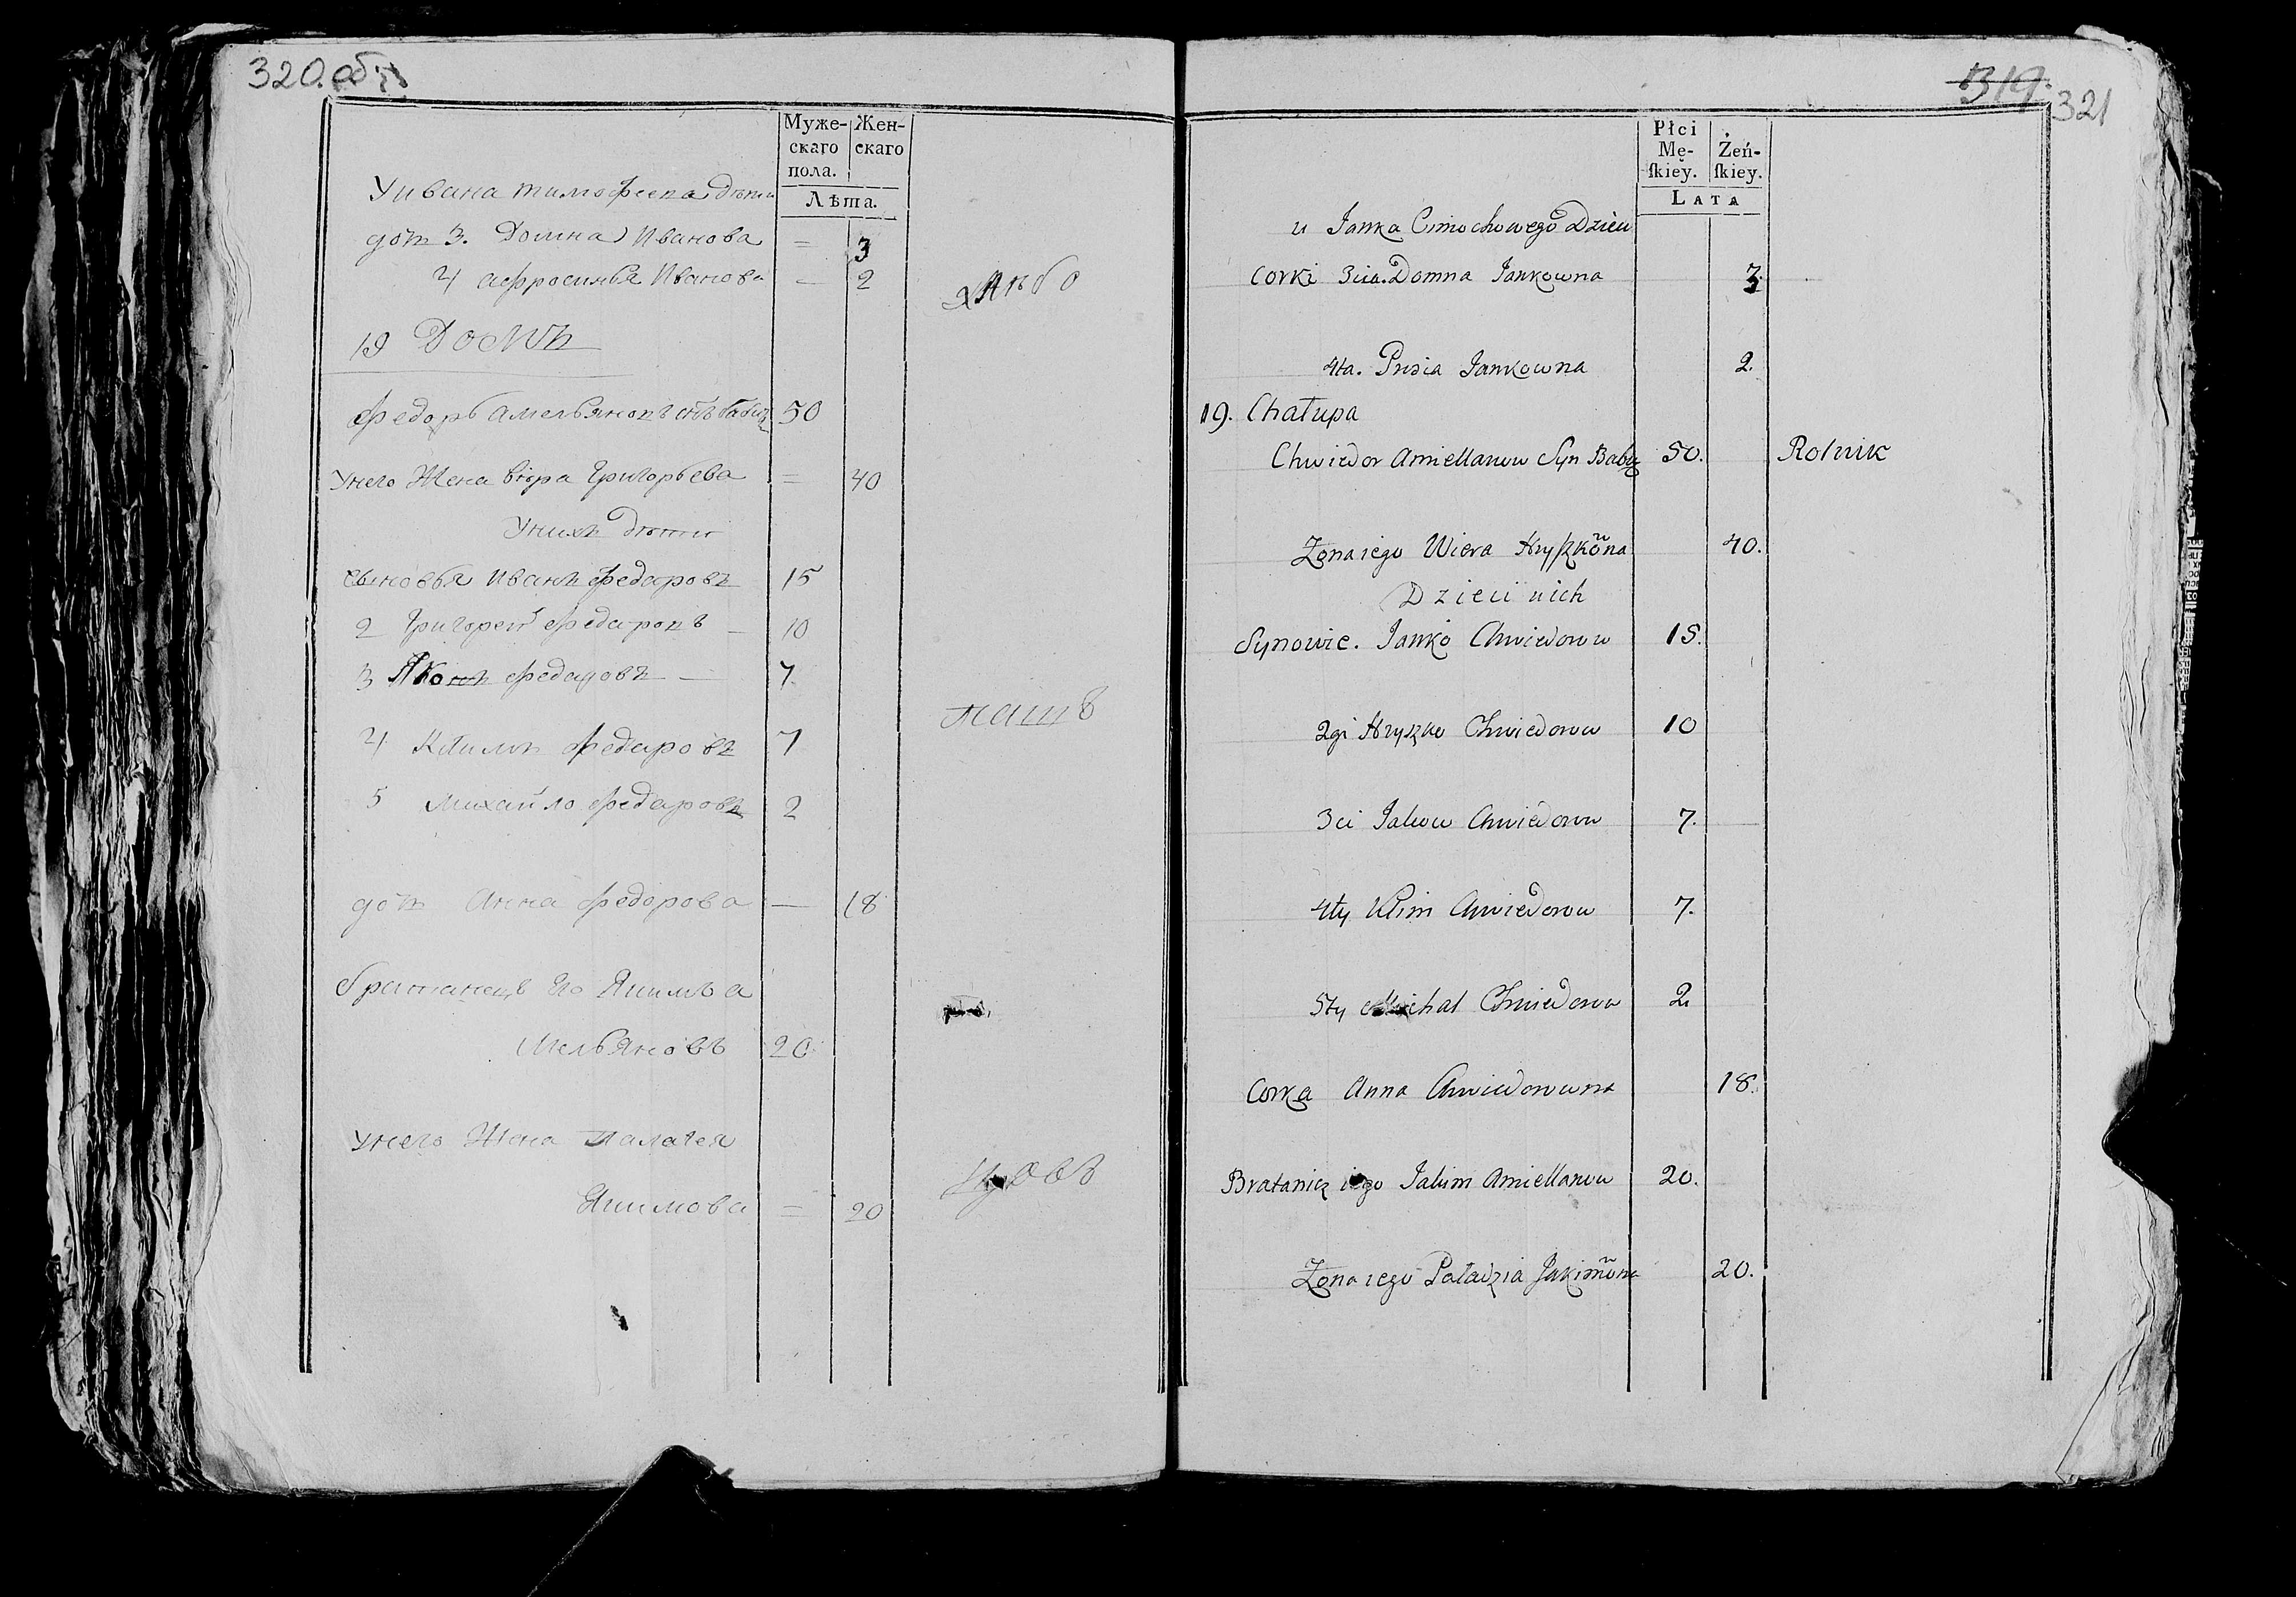 320 об
Муже- Жен-
скаго скаго
пола.
Лѣта.
У ивана тимофеева дѣти
доч 3. Домна Иванова = 3
4 афросинья Иванова – 2
хлѣбо
19 Домъ
федоръ амельяновъ снъ бабич 50
Унего Жена вѣра Григорьева = 40
Унихъ дѣти
сыновья Иванъ федаровъ 15
2 Григорей федаровъ – 10
3 Яковъ федаровъ – 7
пашъ
4 Климъ федаровъ 7
5 михайло федаровъ 2
доч Анна федорова — 18
братанецъ его Якимъ а
мельяновъ 20
Унего Жена палагея
Якимова = 20
цовъ
319. 321
Płci
Mę- Żeń-
ſkiey. ſkiey.
LATA
u Janka Cimochowego Dzieci
Corki 3cia. Domna Jankowna 3.
4ta. Prisia Jankowna 2.
19. Chałupa
Chwiedor Amiellanow Syn Babicz 50. Rolnik
Żona iego Wiera Hryszkōna 40.
Dzieci u ich
Synowie. Janko Chwiedorow 15.
2gi Hryszko Chwiedorow 10
3ci Jakow Chwiedorow 7.
4ty Klim Chwiedorow 7.
5ty Michał Chwiedorow 2
Corka Anna Chwiedorowna 18.
Bratanicz iego Jakim Amiellanow 20.
Żona iego Paładzia Jakimōna 20.